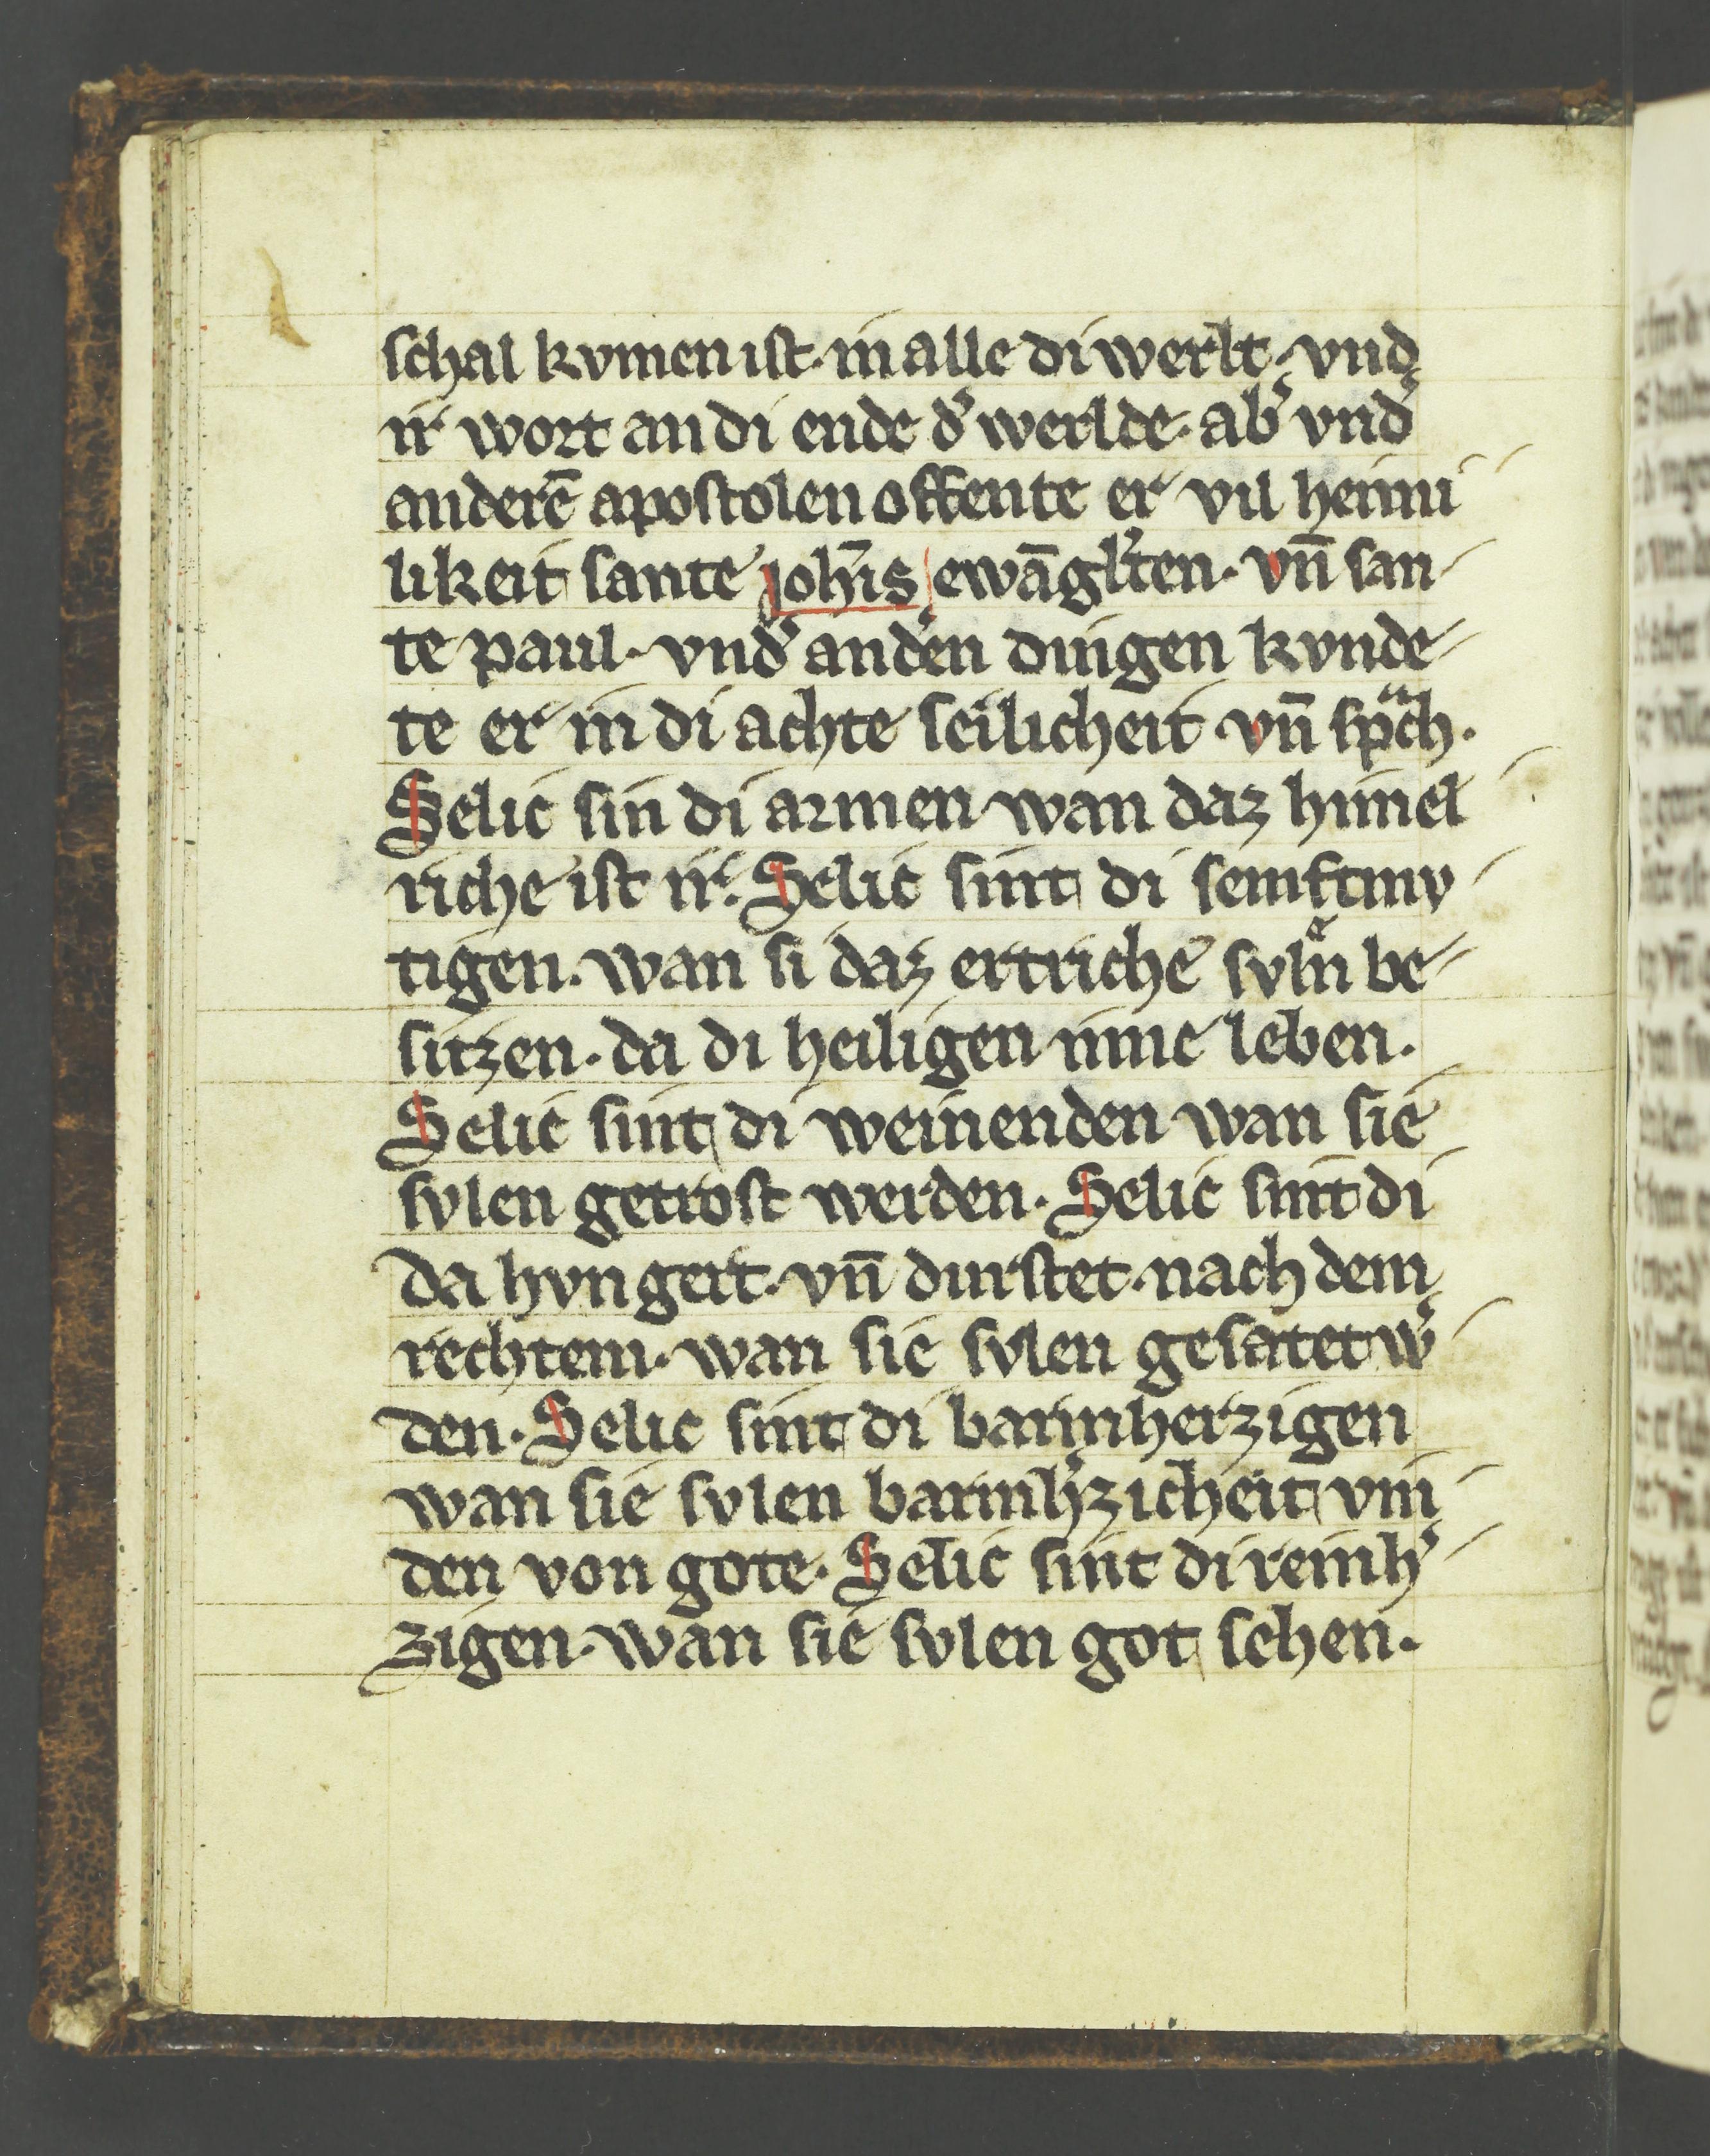 schal kvmen ist · in alle di werlt · vnd
ir wort an di ende d᾽ werlde · ab᾽ vnd᾽
anderē apostolen offente er vil heimi
likeit sante joh̄is ewāgl᾽ten · vn̄ san-
te paul · vnd᾽ and᾽en dingen kvnde-
te er in di achte seilicheit · vn̄ spͣch ·
Selic sin di armen wan daz himel
riche ist ir · Selic sint di semftmv
tigen · wan si daz ertriche svln᾽ be-
sitzen · da di heiligen inne leben ·
Selic sint di weinenden wan sie
svlen getrost werden · Selic sint di
da hvngert · vn̄ durstet · nach dem
rechtem · wan sie svlen gesatet w᾽
den · Selic sint di barmherzigen
wan sie svlen barmh᾽zicheit vin
den von gote · Selic sint di reinh᾽
zigen · wan sie svlen got sehen ·